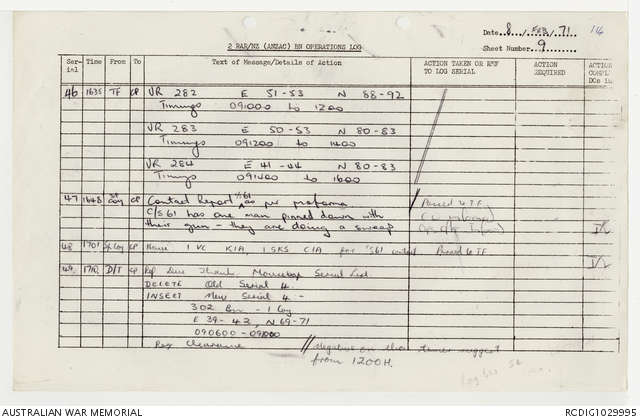 2 RAR/NZ (ANZAC) BN OPERATIONS LOG
Date 8 / FEB / 71
Sheet Number 9
Serial Time From To Text of Message/Details of Action ACTION TAKEN OR REF TO LOG SERIAL ACTION REQUIRED ACTION
46 1635 TF CP VR 282 E 51-53 N 88-92
Timings 091000 to 1200
VR 283 E 50-53 N 80-83
Timings 091200 to 1400
VR 284 E 41-44 N 80-83
Timings 091400 to 1600
47 1648 Coy CP Contact Report 61 as per proforma Passed to TF
C/S 61 has one man pinned down with
their gun - they are doing a sweep
48 1701 Coy CP 1 VC KIA, 1 SKS CIA for 61 contact Passed to TF
49 D/T CP Ref Serial List.
DELETE Old Serial 4.
INSERT New Serial 4 -
302 Bn - 1 Coy
E 39-42, N 69-71
090600 -
Req Clearance // Negative on that suggest
from 1200H.
AUSTRALIAN WAR MEMORIAL
RCDIG1029995